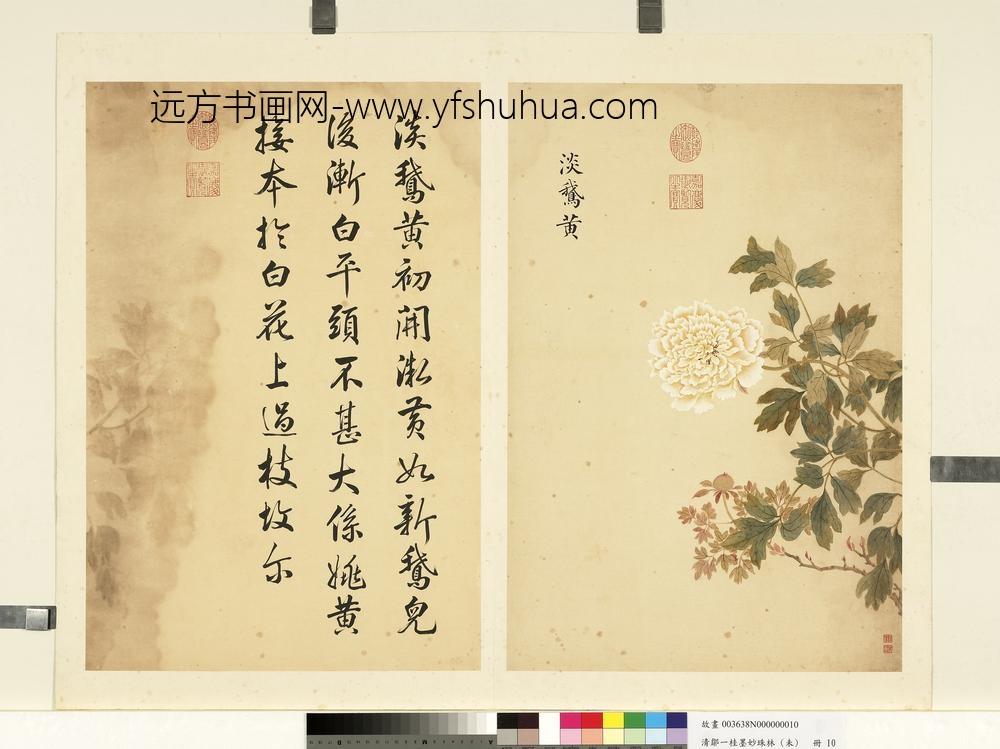 远方书画网-www.yfshuhua.com
淡鵞黄
淡鵞黄初開㳙黄如新鵞兒
後漸白平頭不甚大係姚黄
接本於白花上過枝故尔
故畫 003638N000000010
清鄒一桂墨妙珠林（未） 冊 10